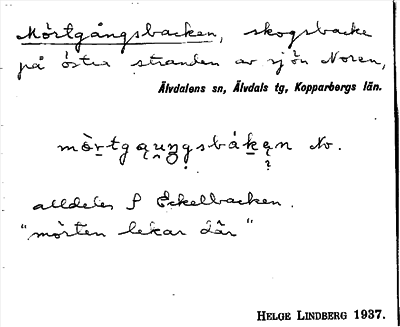 Mörtgångsbacken, skogsbacke
på östra stranden av sjön Noren,
Älvdalens sn, Älvdals tg, Kopparbergs län.
No.
?
alldeles S Eckelbacken.
"mörten lekar där"
HELGE LINDBERG 1937.